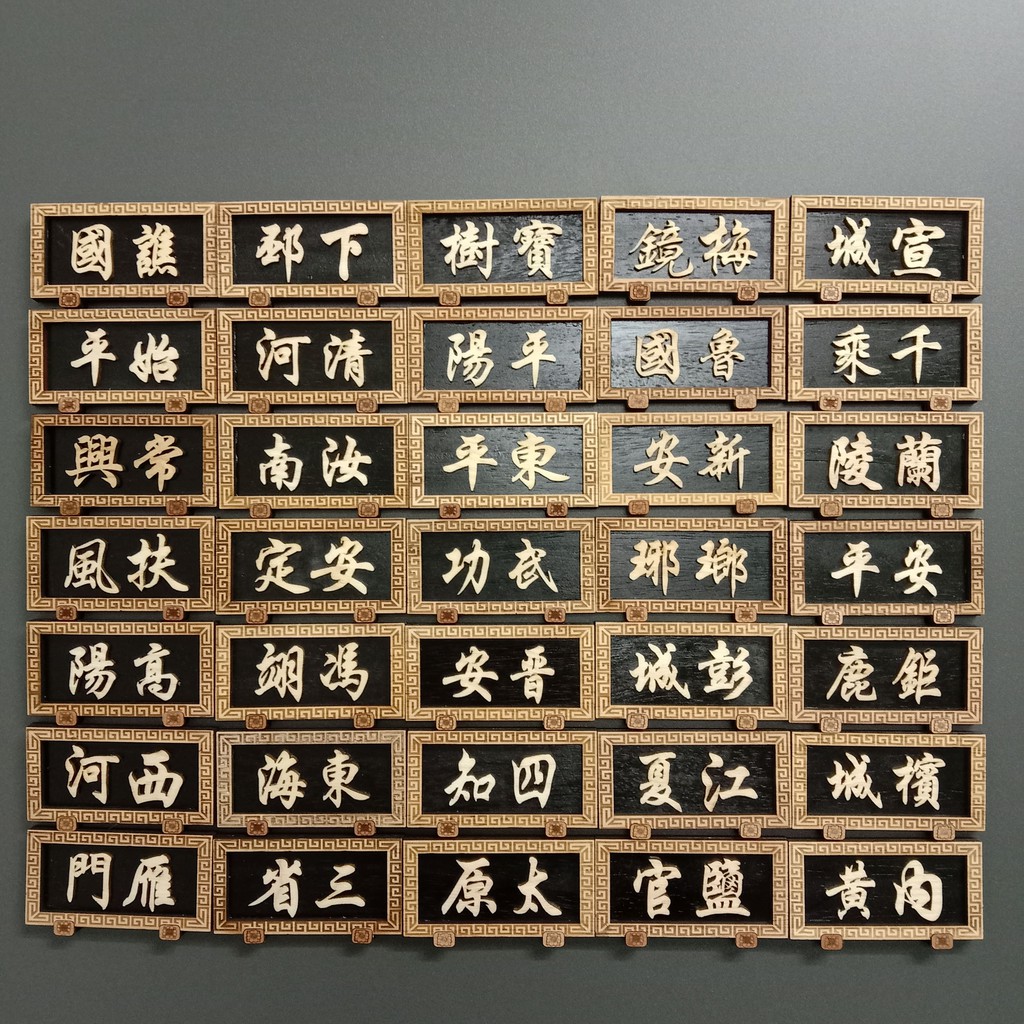 譙國
下邳
寶樹
梅鏡
宣城
始平
清河
平陽
魯國
千乘
常興
汝南
東平
新安
蘭陵
扶風
安定
武功
瑯琊
安平
高陽
馮翊
晉安
彭城
鉅鹿
西河
東海
四知
江夏
檳城
雁門
三省
太原
鹽官
內黃